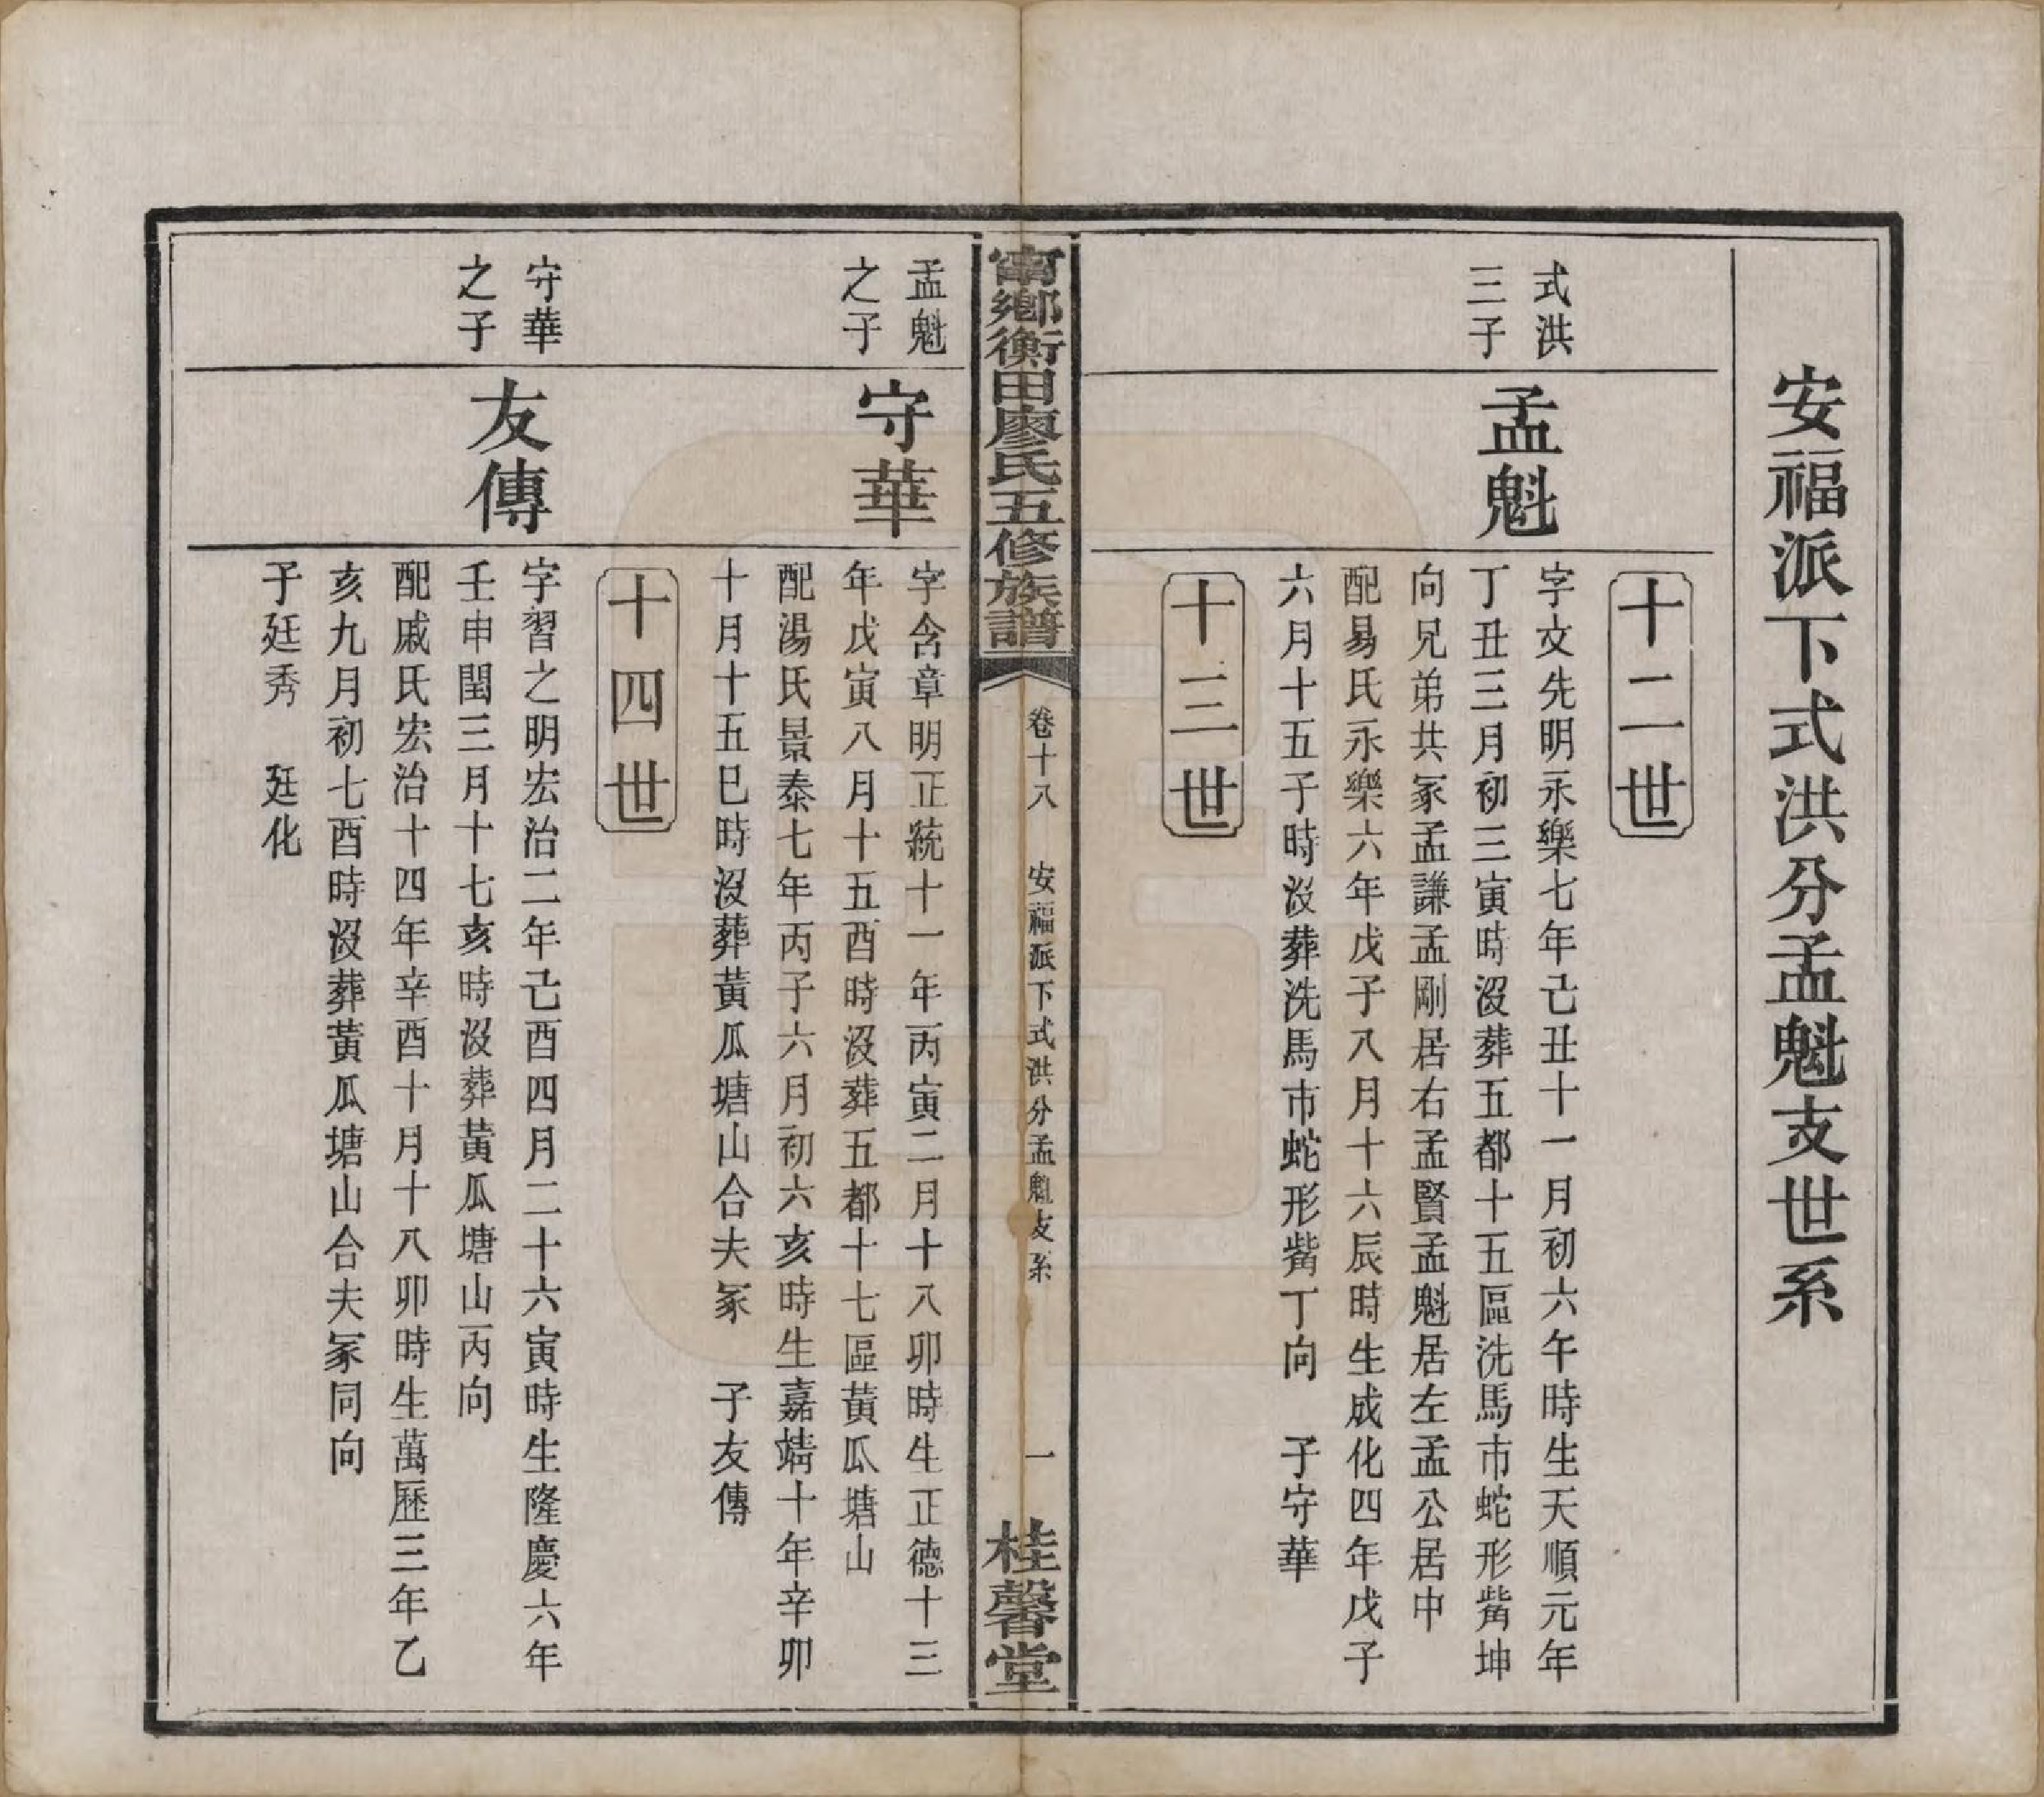 安福派下式洪分孟魁支世系
十二世
式洪
三子
孟魁
字文先明永樂七年己丑十一月初六午時生天順元年
丁丑三月初三寅時沒葬五都十五區洗馬市蛇形觜坤
向兄弟共冢孟謙孟剛居右孟賢孟魁居左孟公居中
配易氏永樂六年戊子八月十六辰時生成化四年戊子
六月十五子時沒葬洗馬市蛇形觜丁向　子守華
十三世
甯鄉衡田廖氏五修族譜
卷十八　安福派下式洪分孟魁支系
一
桂馨堂
孟魁
之子
守華
字含章明正統十一年丙寅二月十八卯時生正德十三
年戊寅八月十五酉時沒葬五都十七區黃瓜塘山
配湯氏景泰七年丙子六月初六亥時生嘉靖十年辛卯
十月十五巳時沒葬黃瓜塘山合夫冢　子友傳
十四世
守華
之子
友傳
字習之明宏治二年己酉四月二十六寅時生隆慶六年
壬申閏三月十七亥時沒葬黃瓜塘山丙向
配戚氏宏治十四年辛酉十月十八卯時生萬歷三年乙
亥九月初七酉時沒葬黃瓜塘山合夫冢同向
子廷秀　廷化